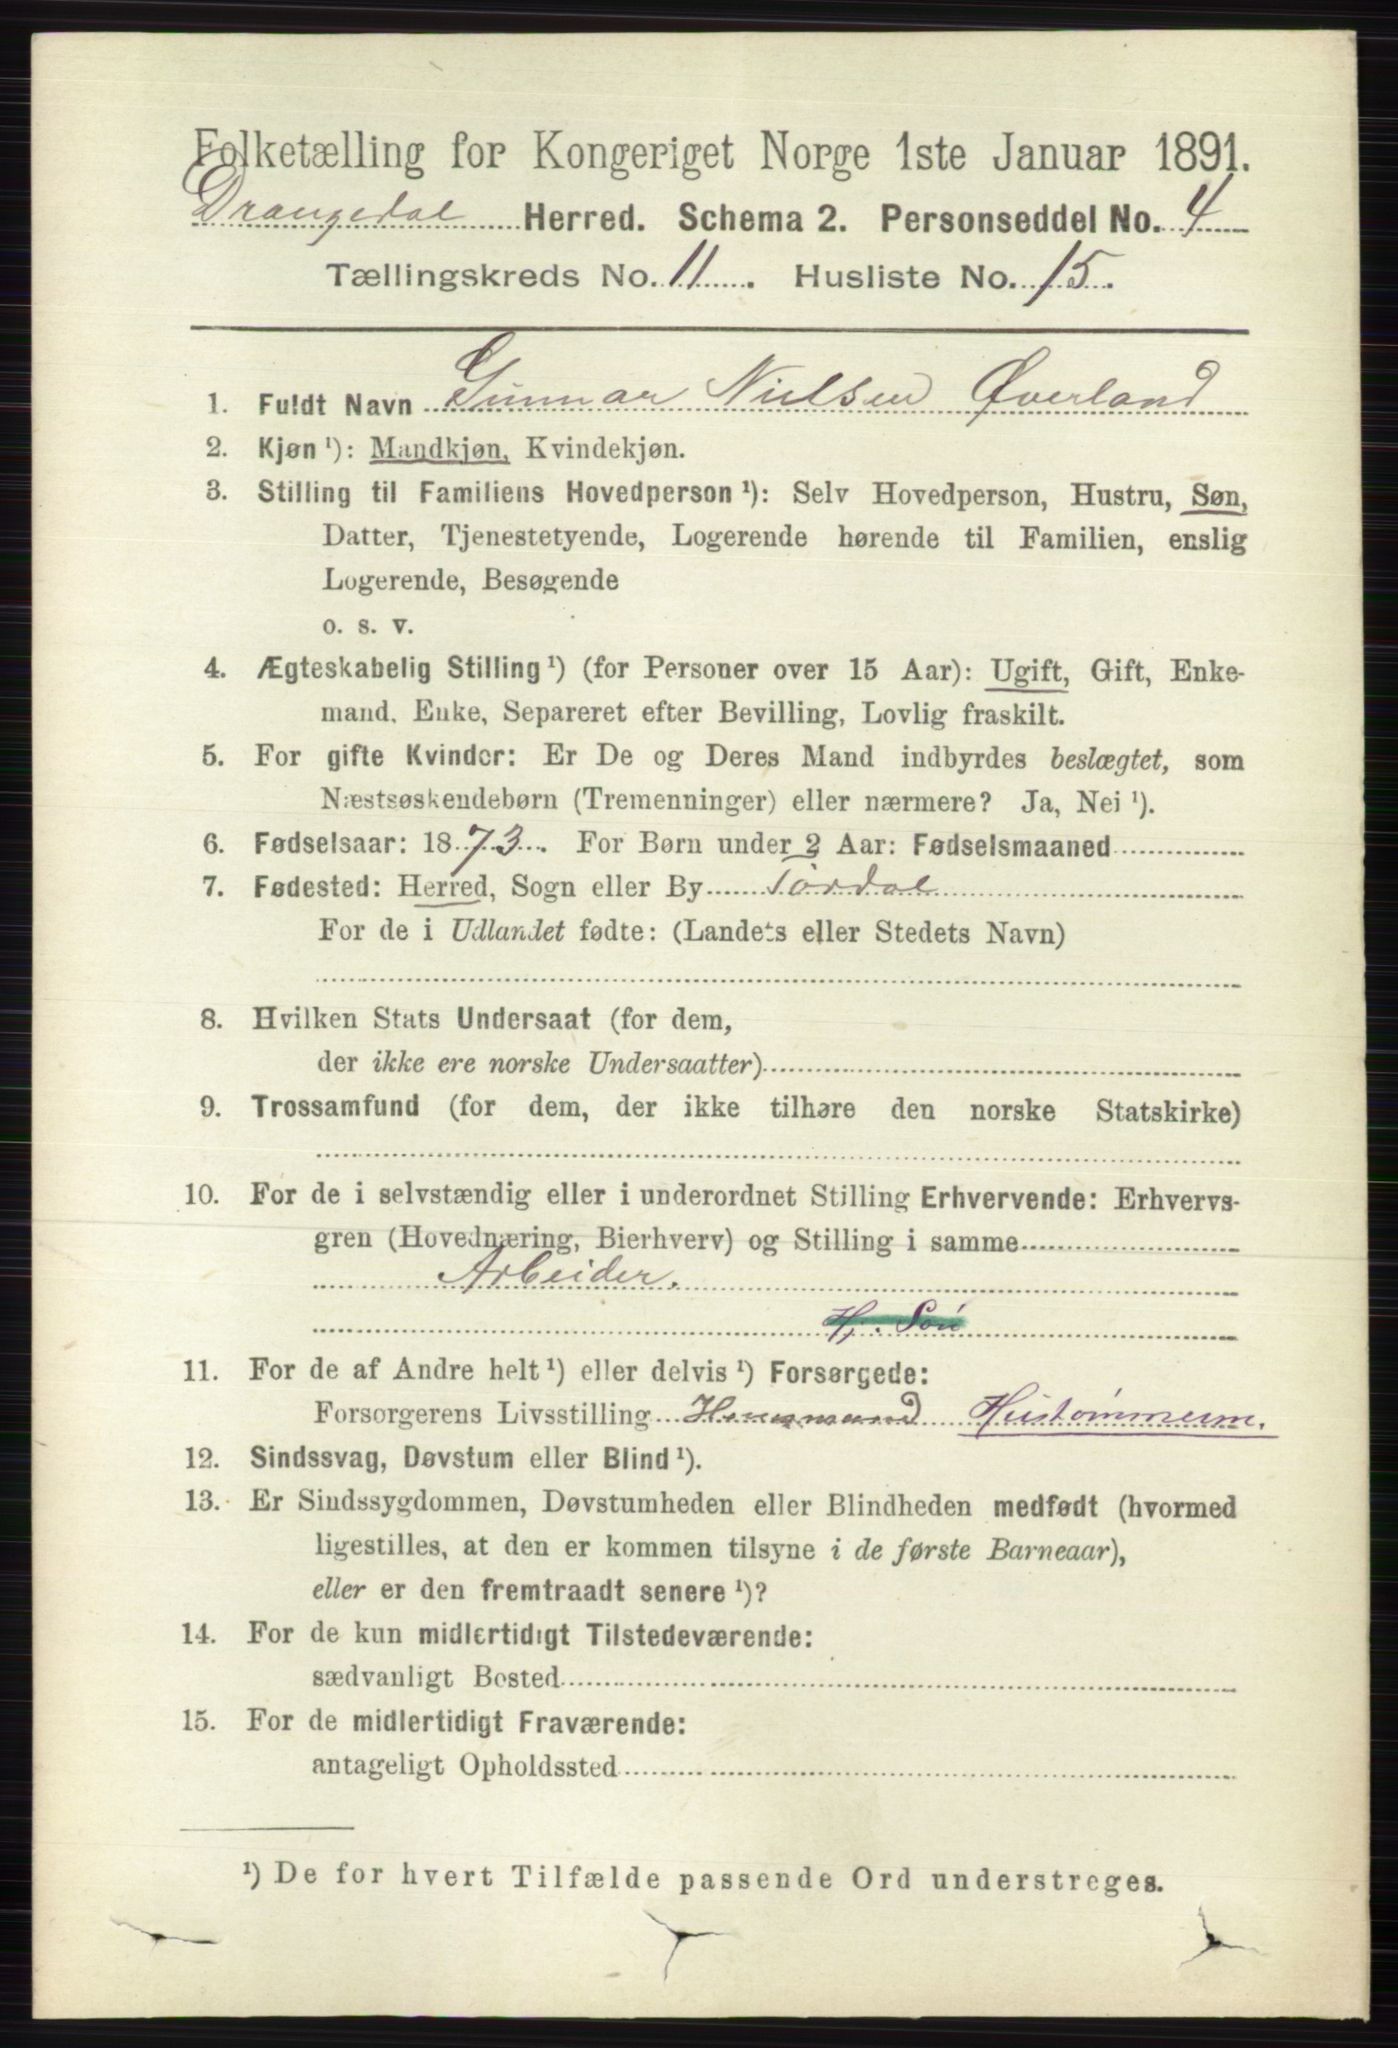 Folketælling for Kongeriget Norge 1ste Januar 1891.
Drangedal Herred. Schema 2. Personseddel No. 4
Tællingskreds No. 11. Husliste No. 15.
1. Fuldt Navn Gunnar Nielsen Øverland
2. Kjøn ¹): Mandkjøn, Kvindekjøn.
3. Stilling til Familiens Hovedperson ¹): Selv Hovedperson, Hustru, Søn,
Datter, Tjenestetyende, Logerende hørende til Familien, enslig
Logerende, Besøgende
o. s. v.
4. Ægteskabelig Stilling ¹) (for Personer over 15 Aar): Ugift, Gift, Enke-
mand, Enke, Separeret efter Bevilling, Lovlig fraskilt.
5. For gifte Kvinder: Er De og Deres Mand indbyrdes beslægtet, som
Næstsøskendebørn (Tremenninger) eller nærmere? Ja, Nei ¹).
6. Fødselsaar: 1873. For Børn under 2 Aar: Fødselsmaaned
7. Fødested: Herred, Sogn eller By Tørdal
For de i Udlandet fødte: (Landets eller Stedets Navn)
8. Hvilken Stats Undersaat (for dem,
der ikke ere norske Undersaatter)
9. Trossamfund (for dem, der ikke tilhøre den norske Statskirke)
10. For de i selvstændig eller i underordnet Stilling Erhvervende: Erhvervs-
gren (Hovednæring, Bierhverv) og Stilling i samme
Arbeider.
H. Søn
11. For de af Andre helt ¹) eller delvis ¹) Forsørgede:
Forsørgerens Livsstilling Hustømmerm.
12. Sindssvag, Døvstum eller Blind ¹).
13. Er Sindssygdommen, Døvstumheden eller Blindheden medfødt (hvormed
ligestilles, at den er kommen tilsyne i de første Barneaar),
eller er den fremtraadt senere ¹)?
14. For de kun midlertidigt Tilstedeværende:
sædvanligt Bosted
15. For de midlertidigt Fraværende:
antageligt Opholdssted
¹) De for hvert Tilfælde passende Ord understreges.